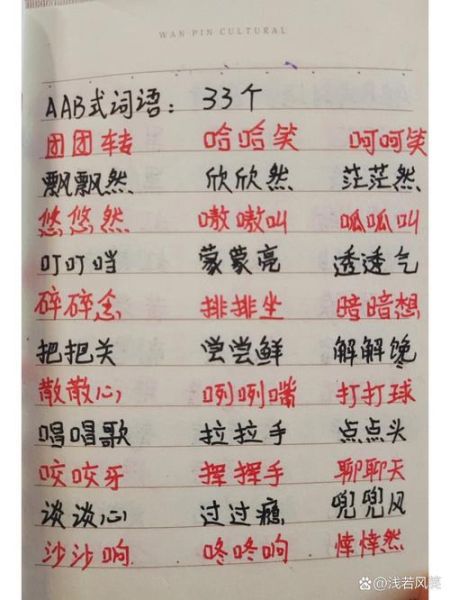 WAN PIN CULTURAL
AAB式词语：33个
团团转 哈哈笑 呵呵笑
飘飘然 欣欣然 茫茫然
悠悠然 嗷嗷叫 呱呱叫
叮叮当 蒙蒙亮 透透气
碎碎念 排排坐 暗暗想
把把关 尝尝鲜 解解馋
散散心 咧咧嘴 打打球
唱唱歌 拉拉手 点点头
咬咬牙 挥挥手 聊聊天
谈谈心 过过瘾 兜兜风
沙沙响 咚咚响 悻悻然
@浅若风笺